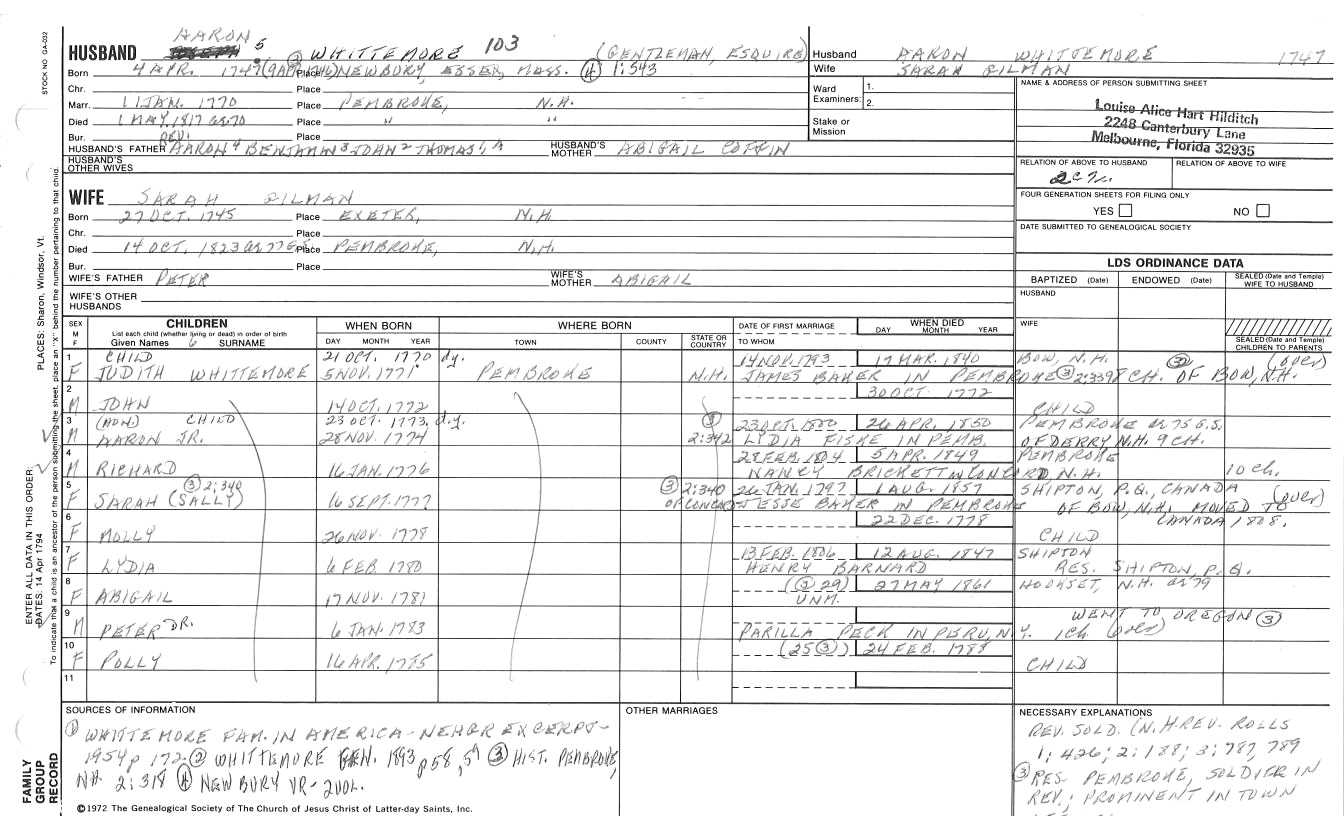 STOCK NO. GA-032
AARON 5
HUSBAND ② WHITTEMORE 103 (GENTLEMAN, ESQUIRE)
Born 4 APR. 1747 Place NEWBURY, ESSEX, MASS. ④ 1:543
Chr. Place
Marr. 11 JAN. 1770 Place PEMBROKE, N.H.
Died 1 MAY, 1817 Place " "
Bur. Place
REV.
HUSBAND'S FATHER AARON 4 BENJAMIN 3 JOHN 2 THOMAS 1 HUSBAND'S MOTHER ABIGAIL COFFIN
HUSBAND'S OTHER WIVES
WIFE SARAH GILMAN
Born 27 OCT. 1745 Place EXETER, N.H.
Chr. Place
Died 14 OCT. 1823 Place PEMBROKE, N.H.
Bur. Place
WIFE'S FATHER PETER WIFE'S MOTHER ABIGAIL
WIFE'S OTHER HUSBANDS
Husband AARON WHITTEMORE 1747
Wife SARAH GILMAN
Ward 1.
Examiners: 2.
Stake or Mission
NAME & ADDRESS OF PERSON SUBMITTING SHEET
Louise Alice Hart Hilditch
2248 Canterbury Lane
Melbourne, Florida 32935
RELATION OF ABOVE TO HUSBAND RELATION OF ABOVE TO WIFE
FOUR GENERATION SHEETS FOR FILING ONLY
YES NO
DATE SUBMITTED TO GENEALOGICAL SOCIETY
LDS ORDINANCE DATA
BAPTIZED (Date) ENDOWED (Date) SEALED (Date and Temple) WIFE TO HUSBAND
HUSBAND
WIFE
SEALED (Date and Temple) CHILDREN TO PARENTS
SEX M F
CHILDREN
List each child (whether living or dead) in order of birth
Given Names 6 SURNAME
WHEN BORN
DAY MONTH YEAR
WHERE BORN
TOWN COUNTY STATE OR COUNTRY
DATE OF FIRST MARRIAGE
TO WHOM
WHEN DIED
DAY MONTH YEAR
1 CHILD 21 OCT. 1770 d.y. 14 NOV. 1793 17 MAR. 1840 BOW, N.H. (over)
F JUDITH WHITTEMORE 5 NOV. 1771 PEMBROKE N.H. JAMES BAKER IN PEMBROKE ③ 2:339 8 CH. OF BOW, N.H.
2 30 OCT. 1772
M JOHN 14 OCT. 1772 CHILD
3 (NON) CHILD 23 OCT. 1773, d.y. ③ 23 OCT. 1800 26 APR. 1850 PEMBROKE ae 75 G.S.
M AARON JR. 28 NOV. 1774 2:342 LYDIA FISKE IN PEMB. OF DERRY N.H. 9 CH.
4 28 FEB. 1804 5 APR. 1849 PEMBROKE
M RICHARD 16 JAN. 1776 NANCY BRICKETT IN CONCORD, N.H. 10 ch.
5 ③ 2:340 ③ 2:340 26 JAN. 1797 1 AUG. 1857 SHIPTON, P.Q., CANADA (over)
F SARAH (SALLY) 16 SEPT. 1777 OF CONCORD JESSE BAKER IN PEMBROKE OF BOW, N.H. MOVED TO
6 22 DEC. 1778 CANADA 1808.
F MOLLY 26 NOV. 1778 CHILD
7 13 FEB. 1806 12 AUG. 1847 SHIPTON
F LYDIA 6 FEB 1780 HENRY BARNARD RES. SHIPTON, P.Q.
8 (③ 29) 27 MAY 1861 HOOKSET, N.H. ae 79
F ABIGAIL 17 NOV. 1781 UNM.
9 WENT TO OREGON ③
M PETER DR. 6 JAN. 1783 PARILLA PECK IN PERU, N.Y. 1 ch (over)
10 (25 ③) 24 FEB. 1788
F POLLY 16 APR. 1785 CHILD
11
SOURCES OF INFORMATION
① WHITTEMORE FAM. IN AMERICA - NEHGR EXCERPT -
1954 p 172. ② WHITTEMORE GEN. 1893 p 58, 57 ③ HIST. PEMBROKE,
NH. 2:318 ④ NEWBURY VR - 2 VOL.
OTHER MARRIAGES
NECESSARY EXPLANATIONS
REV. SOLD. (N.H. REV. ROLLS
1:426; 2:188; 3:787, 789
③ RES. PEMBROKE, SOLDIER IN
REV.; PROMINENT IN TOWN
©1972 The Genealogical Society of The Church of Jesus Christ of Latter-day Saints, Inc.
FAMILY GROUP RECORD
ENTER ALL DATA IN THIS ORDER:
DATES: 14 Apr 1794 PLACES: Sharon, Windsor, Vt.
To indicate that a child is an ancestor of the person submitting the sheet, place an "X" behind the number pertaining to that child.